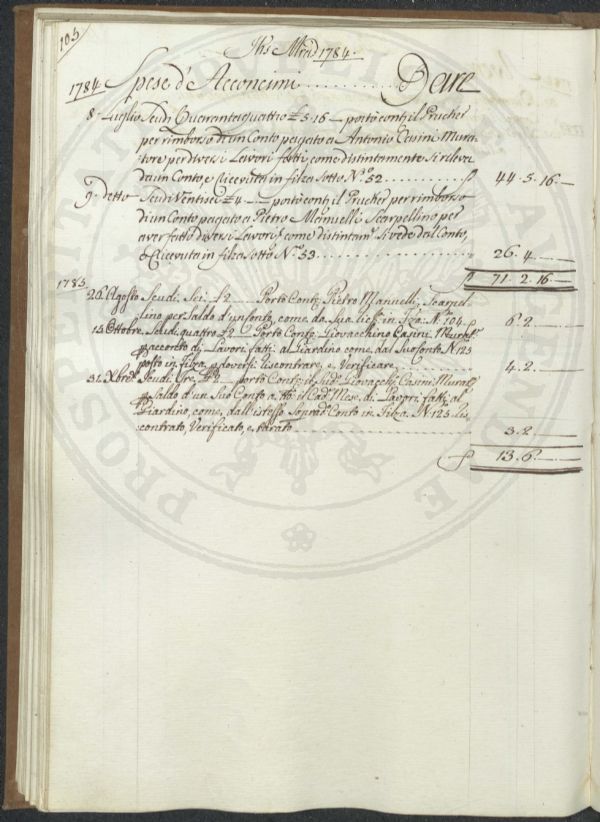 105
Jhs Mra 1784
1784 Spese d'Acconcimi .......... Dare
8 Luglio Scudi Quarantaquattro £ 5.16 — portò conti il Prucher
per rimborso di un Conto pagato a Antonio Casini Mura-
tore per diversi Lavori fatti, come distintamente si rileva
da un Conto e Ricevuta in filza sotto N.º 52 .......... 44.5.16.—
9. detto Scudi Ventisei £ 4 — portò conti il Prucher per rimborso
di un Conto pagato a Pietro Mannelli Scarpellino per
aver fatto diversi Lavori, come distintam.e si vede dal Conto,
e Ricevuta in filza sotto N.º 53 .......... 26.4.—
71.2.16—
1785
26. Agosto Scudi Sei £ 2 — Portò Conti Pietro Mannelli, Scarpel-
lino per Saldo d'un Conto, come da Sua in Filza: N.º 104 .. 6.2.—
15 Ottobre. Scudi quattro £ 2 — Portò Conti Giovacchino Casini Murat.re
p acconto di Lavori fatti al Giardino come dal Suo Conto N. 123
posto in Filza riscontrare, e Verificare .......... 4.2.—
31. Xbre Scudi Tre £ 2 portò Conti il Sud.o Giovacch.o Casini Murat.e
p Saldo d'un Suo Conto a tt.o il Cad.e Mese di Lavori fatti al
Giardino, come, dall'istesso Soprad.o Conto in Filza N. 123 Ris-
contrato, Verificato, e tarato .......... 3.2.—
13.6.—
PROSPERITATI PUBLICAE